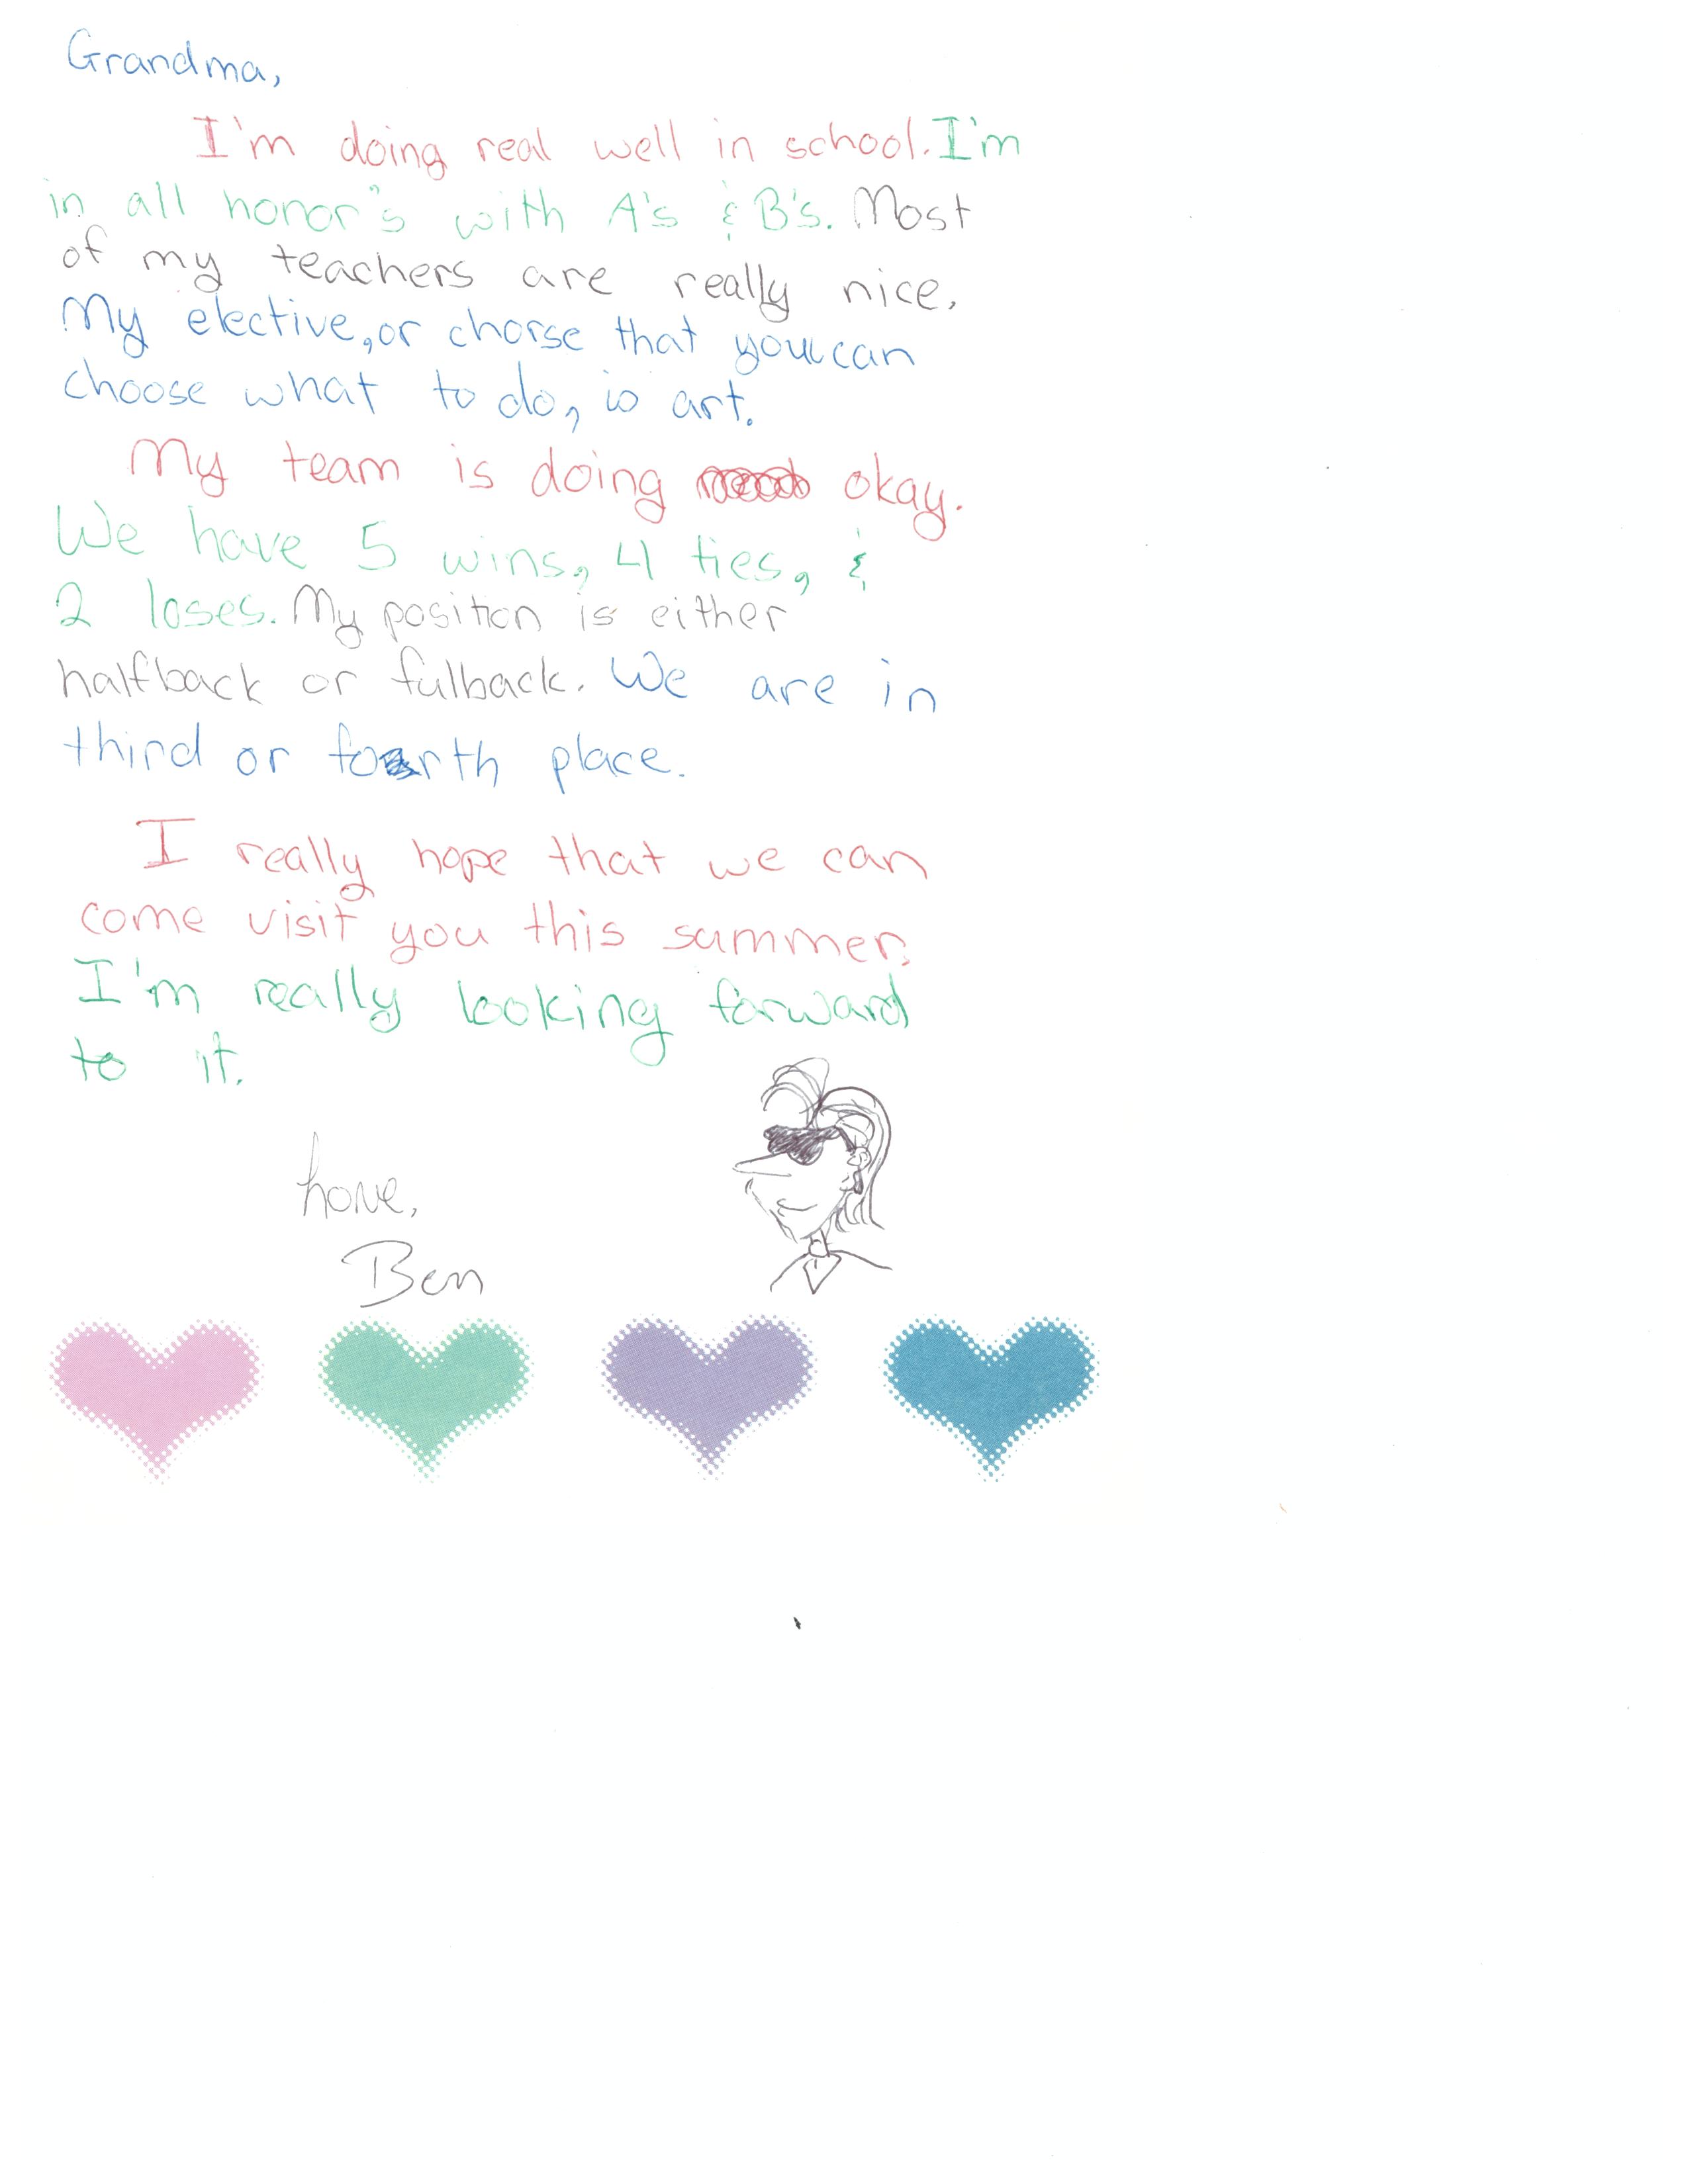 Grandma,
I'm doing real well in school. I'm
in all honor's with A's & B's. Most
of my teachers are really nice.
My elective, or chorse that you can
choose what to do, is art.
My team is doing okay.
We have 5 wins, 4 ties, &
2 loses. My position is either
halfback or fulback. We are in
third or fourth place.
I really hope that we can
come visit you this summer.
I'm really looking forward
to it.
Love,
Ben